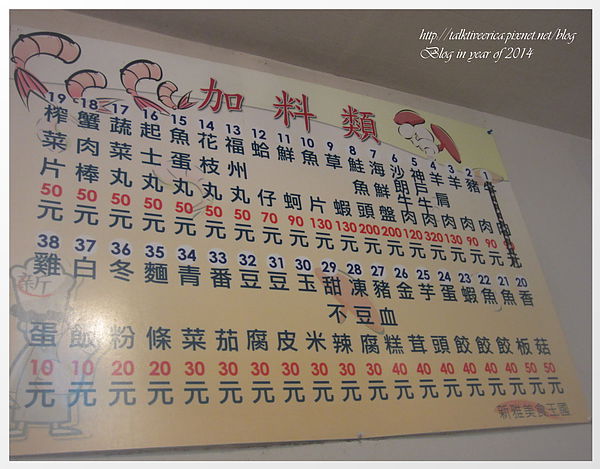 http://talktiveerica.pixnet.net/blog
Blog in year of 2014
加料類
1
2 豬肉 90元
3 羊肉 90元
4 羊肩肉 130元
5 神戶牛肉 320元
6 沙朗牛肉 120元
7 海鮮盤 200元
8 鮭魚頭 200元
9 草蝦 130元
10 魚片 130元
11 鮮蚵 90元
12 蛤仔 70元
13 福州丸 50元
14 花枝丸 50元
15 魚蛋丸 50元
16 起士丸 50元
17 蔬菜丸 50元
18 蟹肉棒 50元
19 榨菜片 50元
20 香菇 50元
21 魚板 50元
22 魚餃 40元
23 蝦餃 40元
24 蛋餃 40元
25 芋頭 40元
26 金茸 40元
27 豬血糕 40元
28 凍豆腐 30元
29 甜不辣 30元
30 玉米 30元
31 豆皮 30元
32 豆腐 30元
33 番茄 30元
34 青菜 30元
35 麵條 20元
36 冬粉 20元
37 白飯 10元
38 雞蛋 10元
新雅美食王國